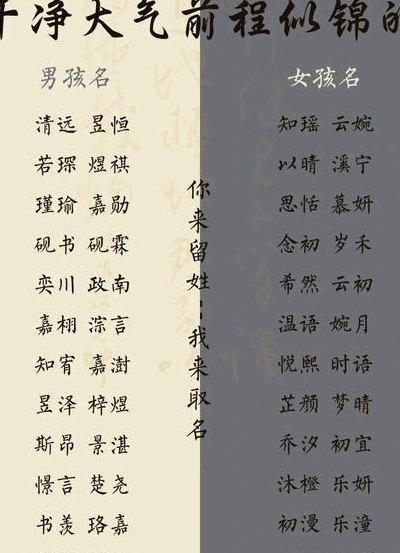 干净大气前程似锦的
男孩名
清远 昱恒
若琛 煜祺
瑾瑜 嘉勋
砚书 砚霖
奕川 政南
嘉栩 淙言
知宥 嘉澍
昱泽 梓煜
斯昂 景湛
憬言 楚尧
书羡 珞嘉
你来留姓：我来取名
女孩名
知瑶 云婉
以晴 溪宁
思恬 慕妍
念初 岁禾
希然 云初
温语 婉月
悦熙 时语
芷颜 梦晴
乔汐 初宜
沐橙 乐妍
初漫 乐潼